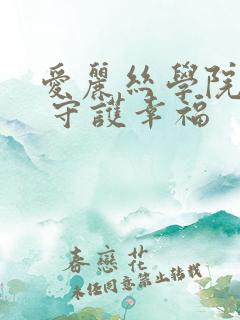 愛麗絲學院
守護幸福
春戀花
未經同意禁止轉載